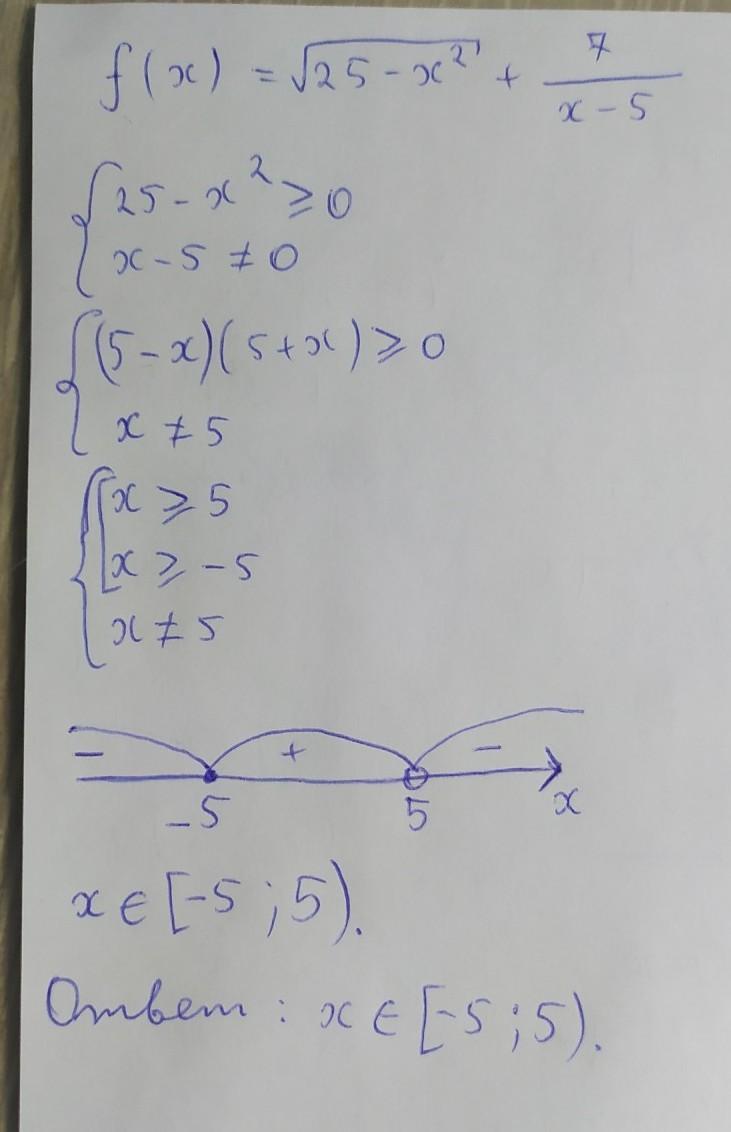 f(x) = √25 - x² + 7/(x - 5)
{ 25 - x² ≥ 0
x - 5 ≠ 0
{ (5 - x)(5 + x) ≥ 0
x ≠ 5
{ [ x ≥ 5
x ≥ -5
x ≠ 5
- + -
-5 5 x
x ∈ [-5 ; 5).
Ответ : x ∈ [-5 ; 5).